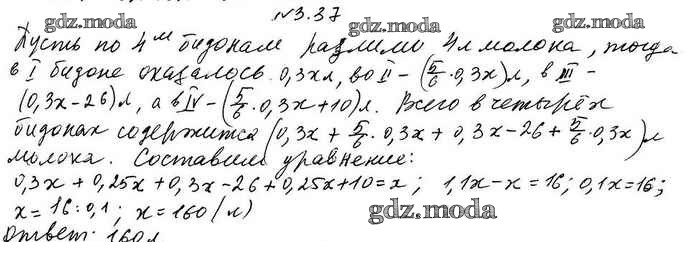 №3.37
gdz.moda
gdz.moda
Пусть по 4м бидонам разлили 4л молока, тогда
в I бидоне оказалось 0,3хл, во II – (5/6·0,3х)л, в III –
(0,3х-26)л, а в IV – (5/6·0,3х+10)л. Всего в четырёх
gdz.moda
бидонах содержится (0,3х + 5/6·0,3х + 0,3х-26 + 5/6·0,3х)л
молока. Составим уравнение:
0,3х + 0,25х + 0,3х-26 + 0,25х+10=х; 1,1х-х=16; 0,1х=16;
х= 16:0,1; х=160(л)
gdz.moda
Ответ: 160л